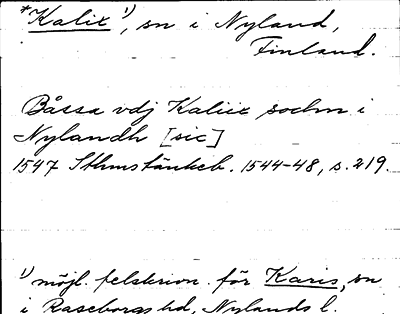 *Kalix ¹⁾, sn i Nyland,
Finland.
Båssa vdj Kaliix sochn i
Nylandh [sic]
1547 Sthmstänkeb. 1544-48, s. 219.
¹⁾ möjl. felskrivn. för Karis, sn
i Raseborgs hd, Nylands l.